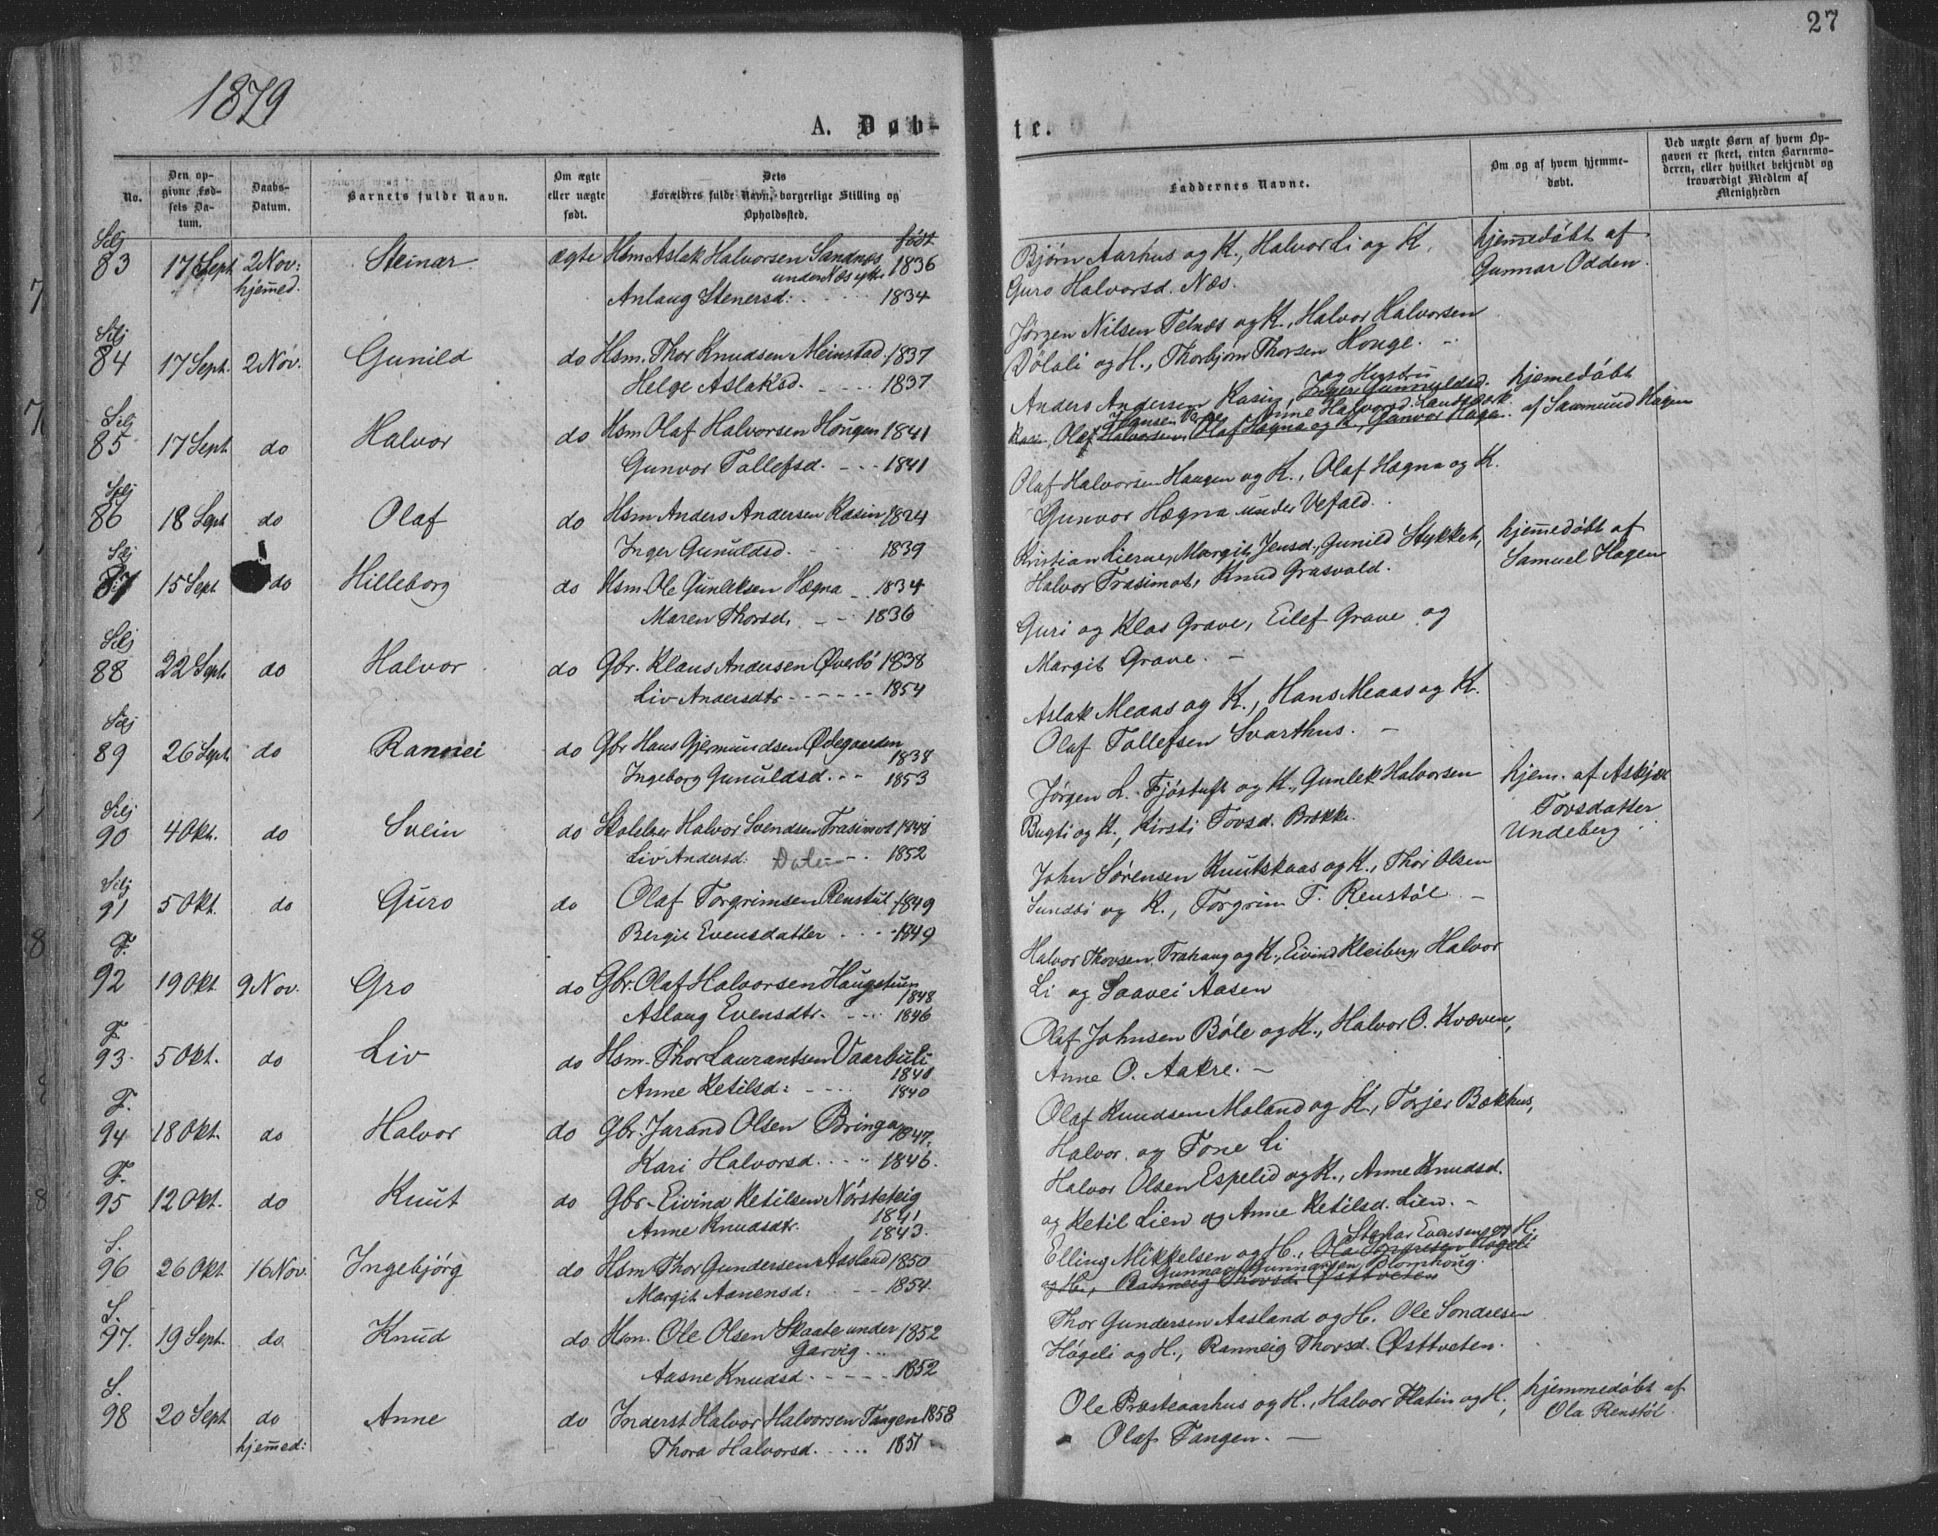 27
1879
A. Døb-
te.
No.
Den op-
givne Fød-
sels Da-
tum.
Daabs-
Datum.
Barnets fulde Navn.
Om ægte
eller uægte
født.
Dets
Forældres fulde Navn, borgerlige Stilling og
Opholdssted.
Faddernes Navne.
Om og af hvem hjemme-
døbt.
Ved uægte Børn af hvem Op-
gaven er skeet, enten Barnemo-
deren, eller hvilket bekjendt og
troværdigt Medlem af
Menigheden
født
Silj
83 17 Sept 2 Nov: Steinar ægte Hsm Aslak Halvorsen Sandnes 1836
hjemed. under Næs
Anlaug Stenersd: 1834
Bjørn Aarhus og K., Halvor Li og K.
Guro Halvorsd. Næs.
hjemmedøbt af
Gunnar Odden.
Silj
84 17 Sept. 2 Nov. Gunild do Hsm. Thor Knudsen Meinstad 1837
Helge Aslaksd. 1837
Jørgen Nilsen Telnæs og K., Halvor Halvorsen
Dölali og H., Thorbjørn Thorsen Houge.
Silj
85 17 Sept do Halvor do Hsm Olaf Halvorsen Hougen 1841
Gunvor Tollefsd. 1841
og Hustru
Anders Andersen Rasin, Inger Gunnuldsd.
Anne Halvorsd.
Olaf Halvorsen, Olaf Hagna og K, Gunvor Hagen.
hjemedøbt
af Saamund Hagen
Silj
86 18 Sept do Olaf do Hsm Anders Andersen Rasin 1824
Inger Gunuldsd. 1839
Olaf Halvorsen Haugen og K., Olaf Hægna og K.
Gunvor Hægna under Vefald.
87 15 Sept do Hilleborg do Hsm. Ole Gunleksen Hægna 1834
Maren Thorsd. 1836
Kristian Lierne, Margit Jensd., Gunild Stykket,
Halvor Trasimot, Knud Grasvold.
hjemedøbt af
Samuel Hagen
Silj
88 22 Sept. do Halvor do Gbr. Klaus Andersen Øverbö 1838
Liv Andersdtr 1854
Guri og Klas Grave, Eilef Grave og
Margit Grave.
Silj
89 26 Sept do Rannei do Gbr Hans Gjermundsen Ødegaarden
1838
Ingeborg Gunuldsd. 1853
Aslak Meaas og K., Hans Meaas og K.
Olaf Tollefsen Svarthus.
Silj
90 4 Okt. do Svein do Skolelær Halvor Svendsen Trasimot 1848
Liv Andersd: 1852
Jørgen L. Fjöstuft og K., Gunlek Halvorsen
Bugti og K., Kirsti Tovsd. Brække.
hjem. af Askjær
Tovsdatter
Undeberg
Silj
91 5 Okt. do Guro do Olaf Torgrimsen Renstul 1849
Bergit Evensdatter 1849
John Sörensen Knutskaas og K., Thor Olsen
Sundbö og K., Torgrim T. Renstöl
F.
92 19 Okt. 9 Nov. Gro do Gbr. Olaf Halvorsen Haugstuen
1848
Aslaug Evensdtr. 1846
Halvor Thovsen Trahaug og K., Eivind Kleiberg, Halvor
Li og Saavei Aasen
F.
93. 5 Okt. do Liv do Hsm. Thor Laurantsen Vaarbuli
1840
Anne Ketilsd: 1840
Olaf Johnsen Böle og K., Halvor O. Kvæven,
Anne O. Aakre.
F.
94 18 Okt. do Halvor do Gbr. Jarand Olsen Bringa 1847.
Kari Halvorsd. 1846.
Olaf Knudsen Moland og K., Torjer Bækhus,
Halvor og Tone Li
F.
95 12 Okt. do Knut do Gbr- Eivind Ketilsen Nørsteteig
1841
Anne Knudsdtr. 1843.
Halvor Olsen Espelid og K., Anne Knudsd.
og Ketil Lien og Anne Ketilsd. Lien.
S.
96 26 Okt 16 Nov. Ingebjörg do Hsm Thor Gundersen Aasland 1850
Margit Aanensd: 1854.
Stenar Evensen og H.
Elling Mikkelsen og H., Ola Sondresen Högeli
Gunnar Gunnarsen Blomhoug.
og H., Ranneig Thovsd. Østtveten
S.
97. 19 Sept. do Knud do Hsm. Ole Olsen Skaate under 1852
Garvig
Aasne Knudsd. 1852
Thor Gundersen Aasland og H. Ole Sondresen
Högeli og H., Ranneig Thovsd. Østtveten.
S.
98 20 Sept do Anne do Inderst Halvor Halvorsen Tangen 1858
hjemed: Thora Halvorsd. 1851
Ole Præsteaarhus og H., Halvor Flatin og H.,
Olaf Tangen.
hjemmedøbt af
Ola Renstöl.